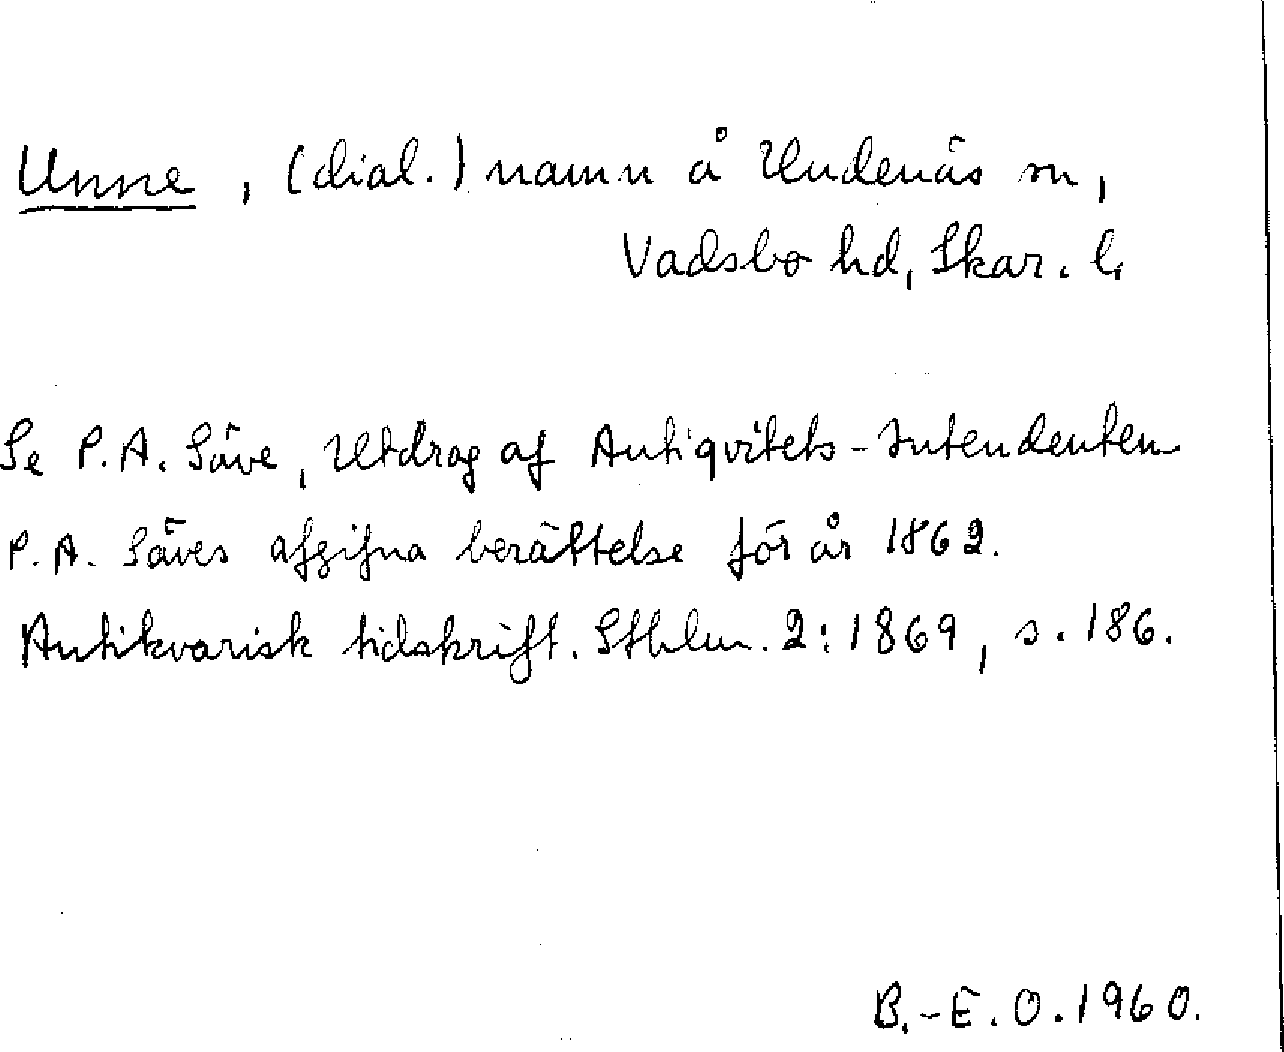 Unne, (dial.) namn å Undenäs sn,
Vadsbo hd, Skar. l.
Se P.A. Säve, Utdrag af Antiqvitets-Intendenten
P.A. Säves afgifna berättelse för år 1862.
Antikvarisk tidskrift. Sthlm. 2:1869, s. 186.
B.-E.O. 1960.